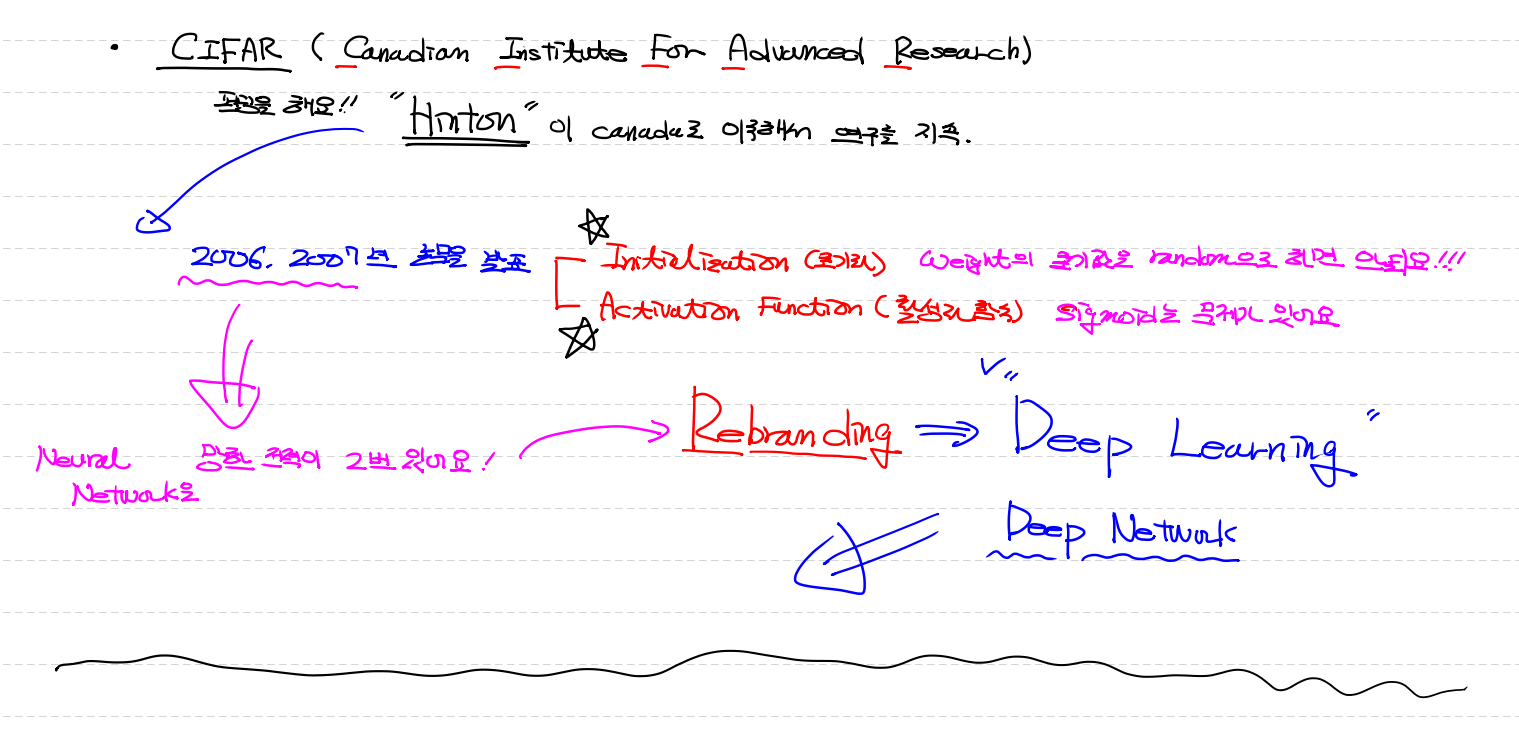 • CIFAR ( Canadian Institute For Advanced Research)
펀딩을 해요!! "Hinton" 이 canada로 이주해서 연구를 지속.
2006. 2007년 논문을 발표
Initialization (초기화) Weight의 초기값을 random으로 하면 안되요!!!
Activation Function (활성화 함수) Sigmoid는 문제가 있어요
Neural Network을 망한 전적이 2번 있어요!
Rebranding ⇒ "Deep Learning"
Deep Network